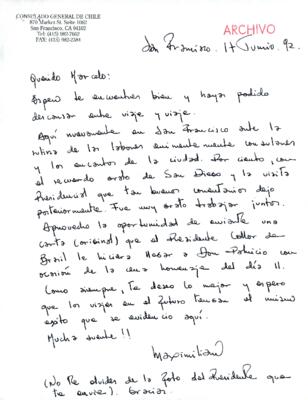 CONSULADO GENERAL DE CHILE
870 Market St. Suite 1062
San Francisco, CA 94102
Tel: (415) 982-7662
FAX: (415) 982-2384
ARCHIVO
San Francisco, 17 Junio, 92.
Querido Marcelo:
Espero te encuentres bien y hayas podido
descansar entre viaje y viaje.
Aquí nuevamente en San Francisco ante la
rutina de las labores eminentemente consulares
y los encantos de la ciudad. Por cierto, con
el recuerdo grato de San Diego y la visita
Presidencial que tan buenos comentarios dejó
posteriormente. Fue muy grato trabajar juntos.
Aprovecho la oportunidad de enviarte una
carta (original) que el Presidente Collor de
Brasil le hiciera llegar a Don Patricio con
ocasión de la cena homenaje del día 11.
Como siempre, te deseo lo mejor y espero
que los viajes en el futuro tengan el mismo
éxito que se evidenció aquí.
Mucha suerte!!
Maximiliano
(No te olvides de la foto del Presidente que
te envié). Gracias.